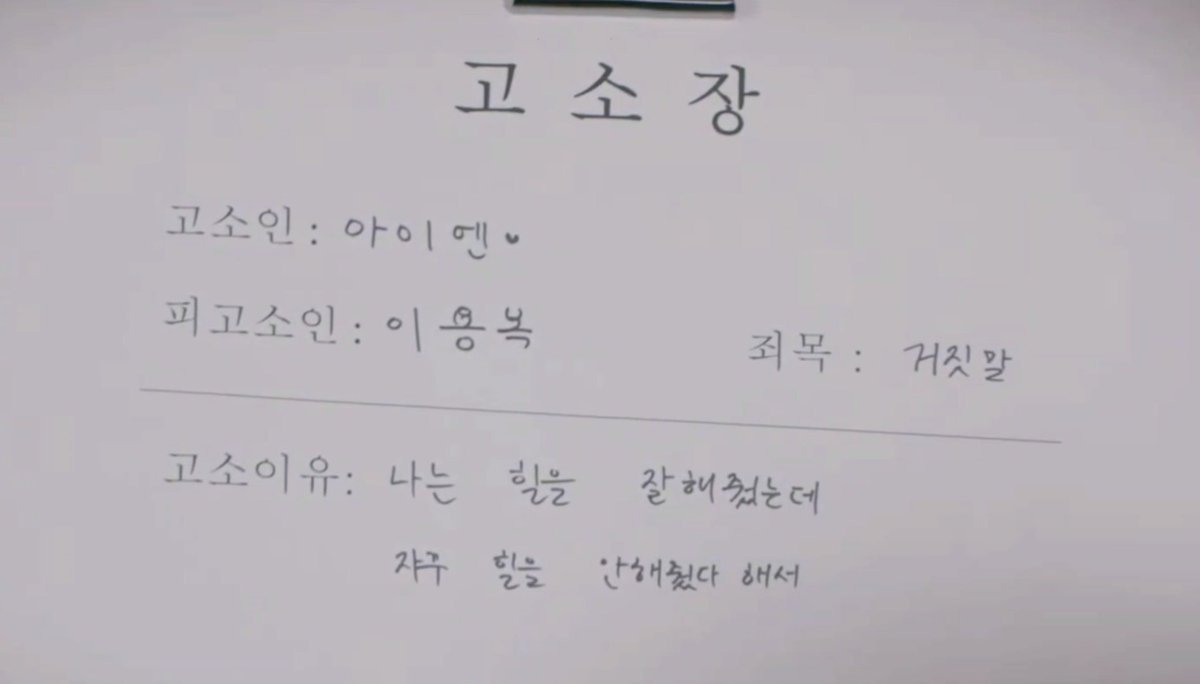 고 소 장
고소인 : 아이엔
피고소인 : 이용복
죄목 : 거짓말
고소이유 : 나는 힐을 잘해줬는데
자꾸 힐을 안해줬다 해서